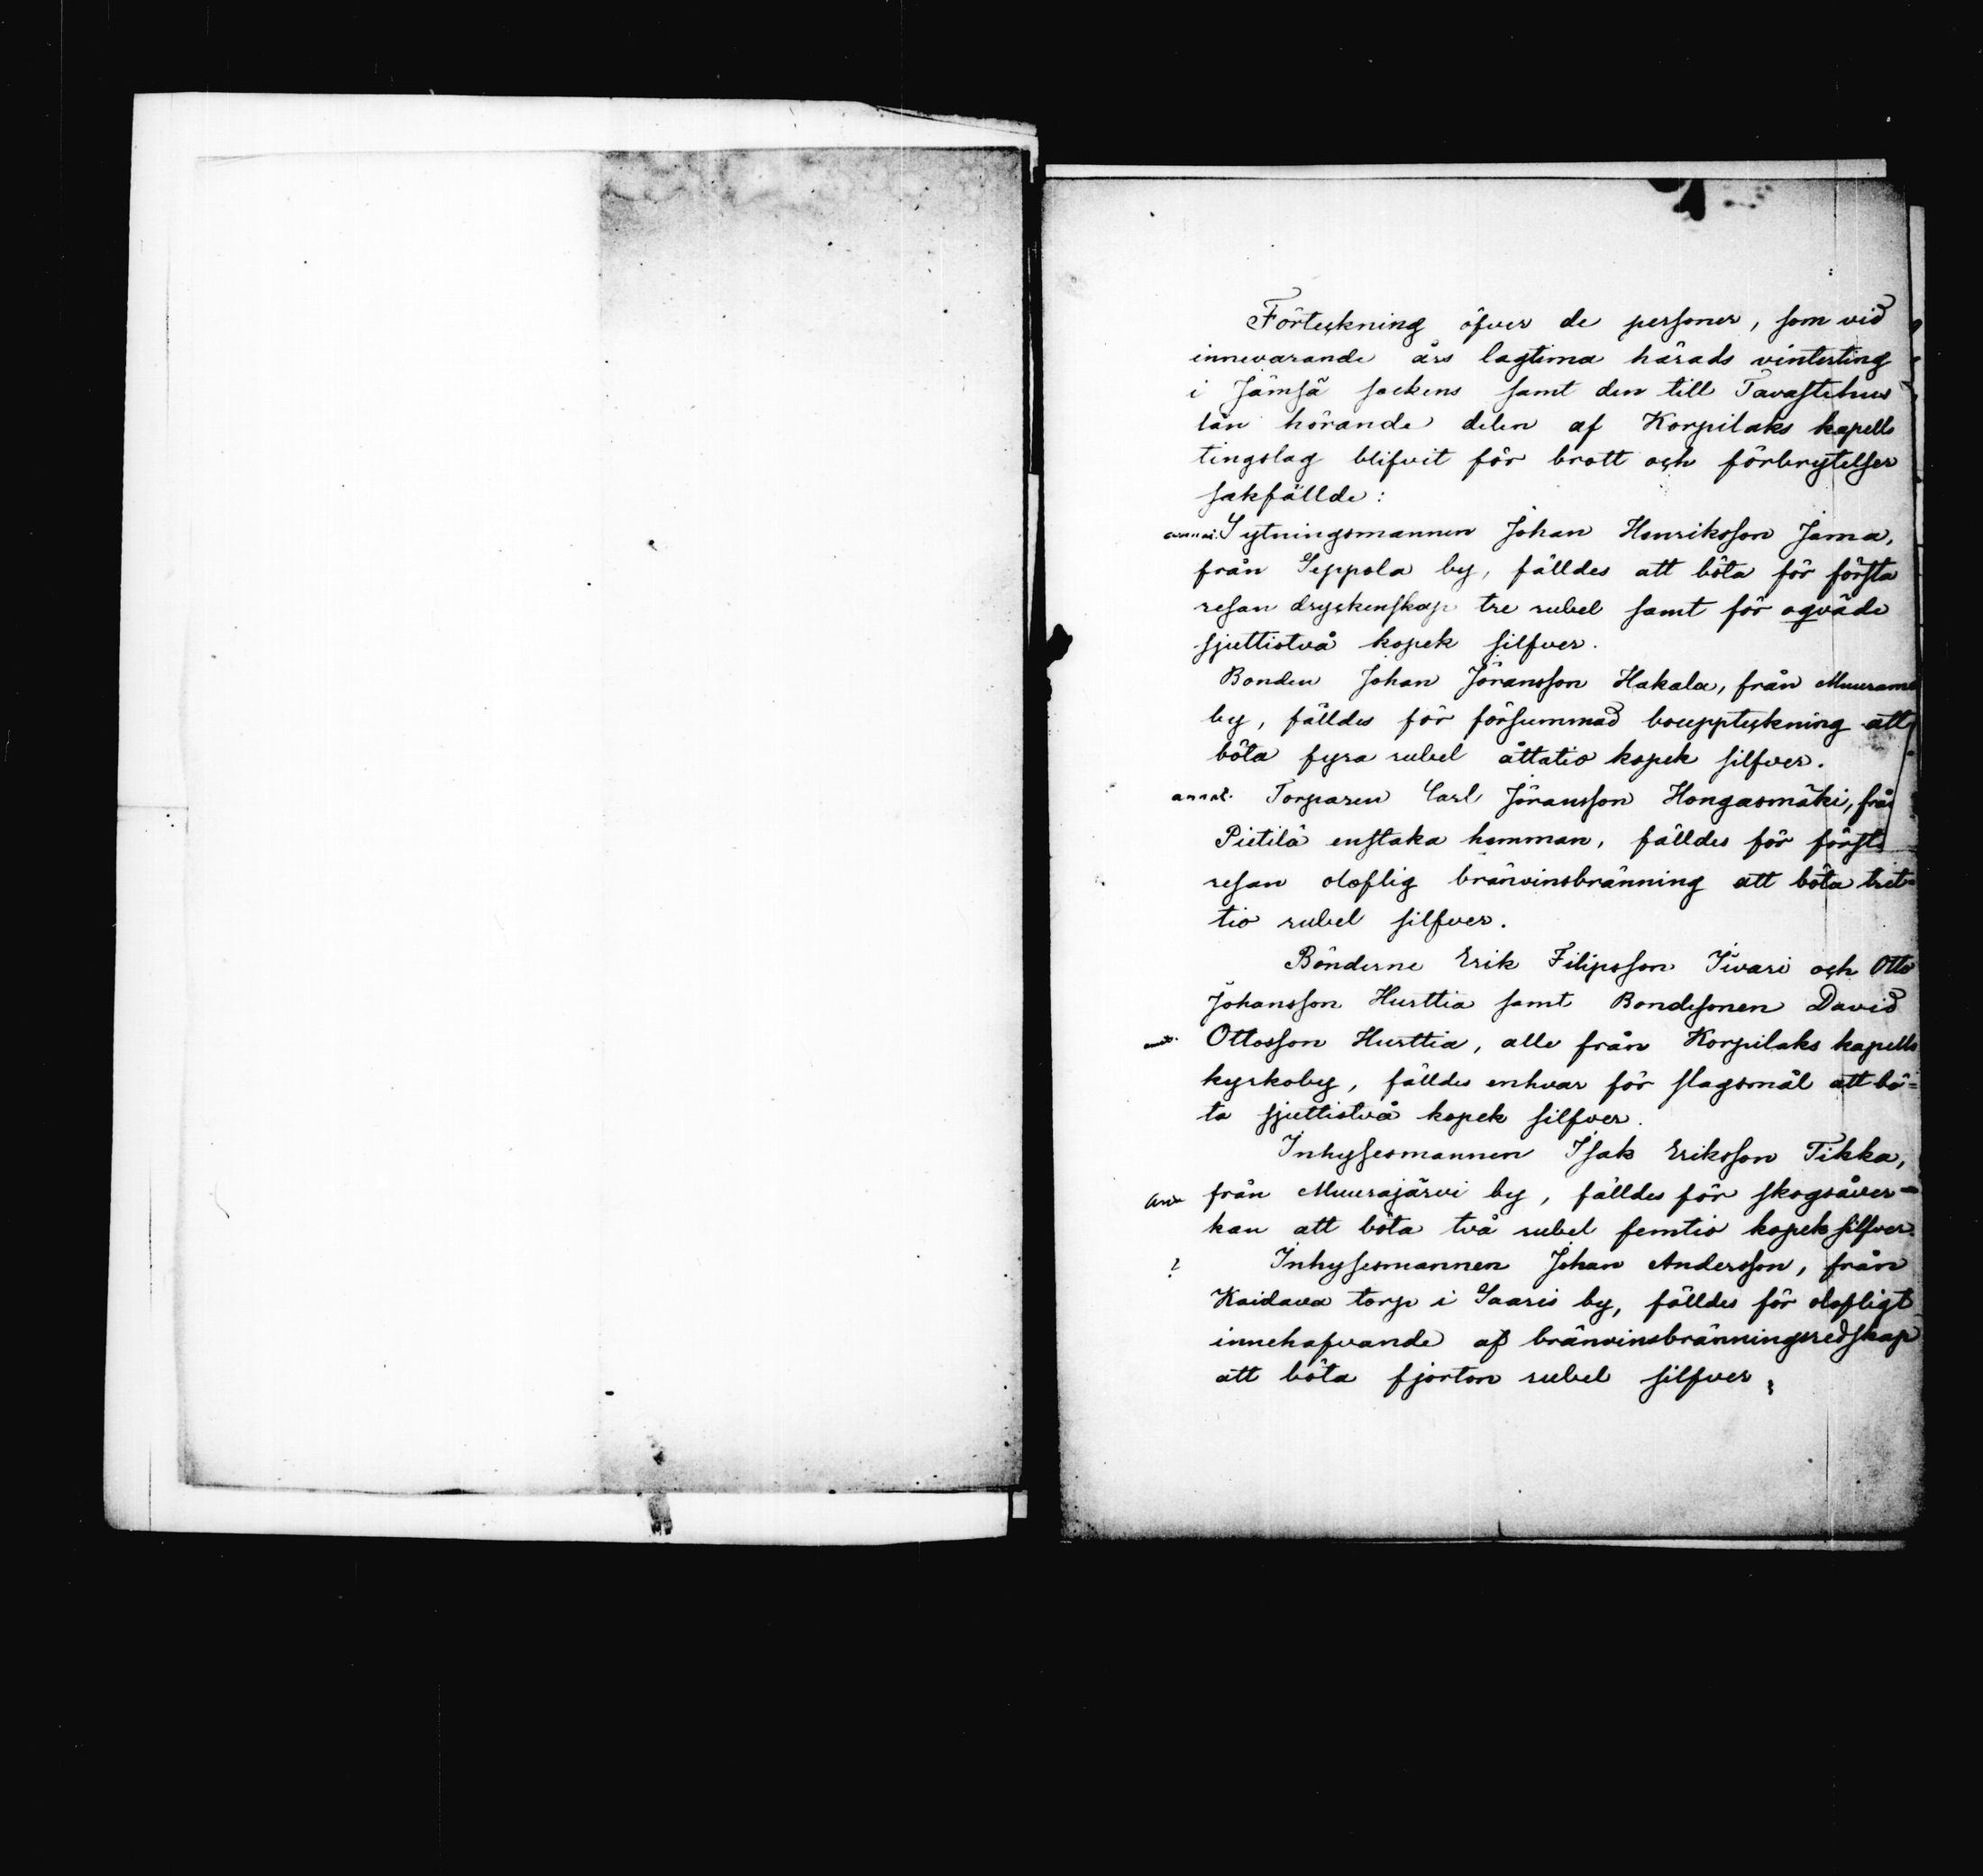 Förteckning öfver de personer, som vid
innevarande års lagtima härads vinterting
i Jämsä sockens samt den till Tavastehus
län hörande delen af Korpilaks kapells
tingslag blifvit för brott och förbrytelser
sakfällde:
Sytningsmannen Johan Henriksson Jäma,
från Seppola by, fälldes att böta för första
resan dryckenskap tre rubel samt för oqväde
sjuttiotvå kopek silfver.
Bonden Johan Jöransson Hakala, från Muurame
by, fälldes för försummad bouppteckning att
böta fyra rubel åttatio kopek silfver.
annot. Torparen Carl Jöransson Hongasmäki, från
Pietilä enstaka hemman, fälldes för första
resan olaflig bränvinsbränning att böta tret-
tio rubel silfver.
Bönderne Erik Filipsson Iivari och Otto
Johansson Hurttia samt Bondesonen David
Ottosson Hurttia, alle från Korpilaks kapells
kyrkoby, fälldes enhvar för slagsmål att bö-
ta sjuttiotvå kopek silfver.
Inhysesmannen Isak Eriksson Tikka,
från Muurajärvi by, fälldes för skogsåver-
kan att böta två rubel femtio kopek silfver.
? Inhysesmannen Johan Andersson, från
Kaidava torp i Saaris by, fälldes för olofligt
innehafvande af bränvinsbränningsredskap
att böta fjorton rubel silfver;